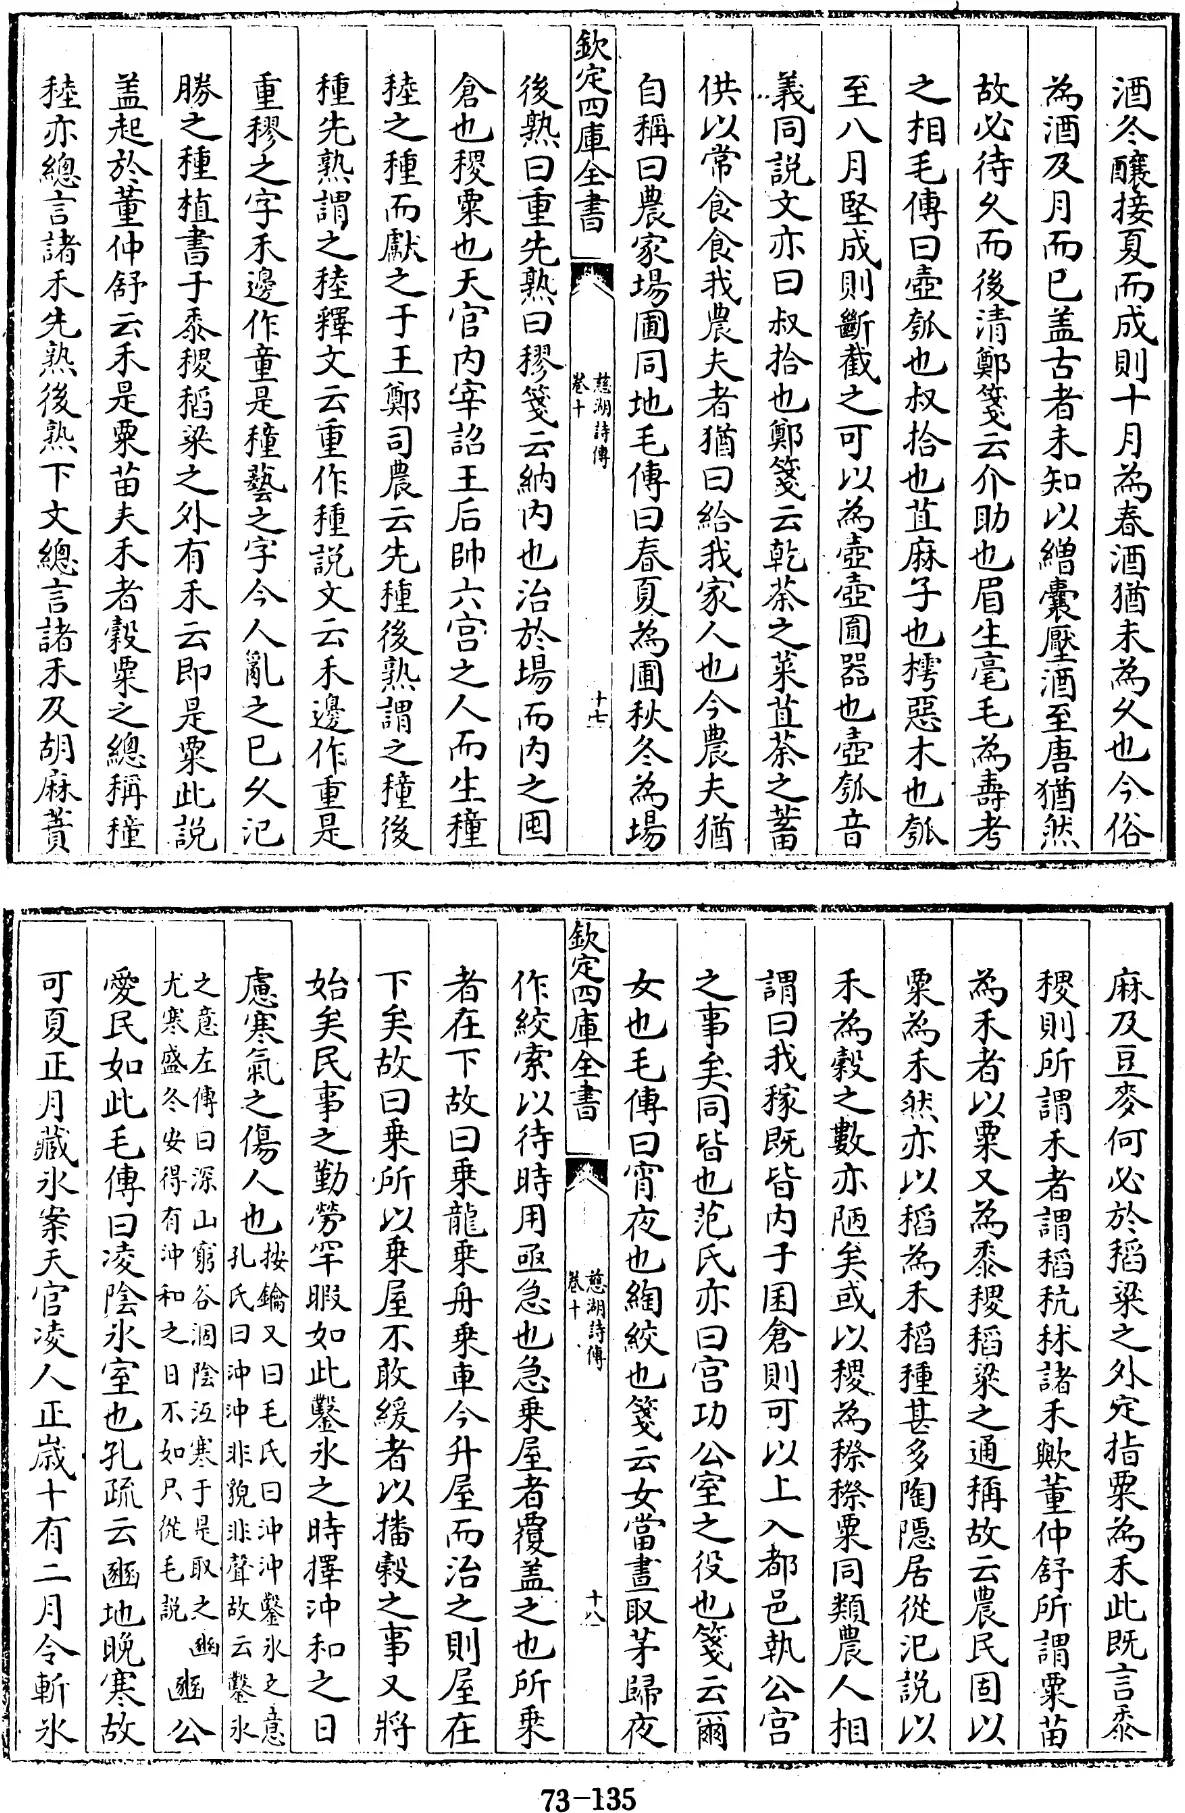 酒冬釀接夏而成則十月為春酒猶未為久也今俗
為酒及月而已盖古者未知以繒囊壓酒至唐猶然
故必待久而後清鄭箋云介助也眉生毫毛為壽考
之相毛傳曰壺瓠也叔拾也苴麻子也樗惡木也瓠
至八月堅成則斷截之可以為壺壺圎器也壺瓠音
義同説文亦曰叔拾也鄭箋云乾荼之菜苴荼之蓄
供以常食食我農夫者猶曰給我家人也今農夫猶
自稱曰農家場圃同地毛傳曰春夏為圃秋冬為場
欽定四庫全書
慈湖詩傳
卷十
十七
後熟曰重先熟曰穋箋云納内也治於場而内之囷
倉也稷粟也天官内宰詔王后帥六宫之人而生穜
稑之種而獻之于王鄭司農云先種後熟謂之穜後
種先熟謂之稑釋文云重作種説文云禾邊作重是
重穋之字禾邊作童是穜藝之字今人亂之已久氾
勝之種植書于黍稷稻粱之外有禾云即是粟此説
盖起於董仲舒云禾是粟苗夫禾者穀粟之總稱穜
稑亦總言諸禾先熟後熟下文總言諸禾及胡麻蕡
麻及豆麥何必於稻粱之外定指粟為禾此既言黍
稷則所謂禾者謂稻秔秫諸禾歟董仲舒所謂粟苗
為禾者以粟又為黍稷稻粱之通稱故云農民固以
粟為禾然亦以稻為禾稻種甚多陶隠居從氾説以
禾為穀之數亦陋矣或以稷為穄穄粟同類農人相
謂曰我稼既皆内于囷倉則可以上入都邑執公宫
之事矣同皆也范氏亦曰宫功公室之役也箋云爾
女也毛傳曰宵夜也綯絞也箋云女當晝取茅歸夜
欽定四庫全書
慈湖詩傳
卷十
十八
作絞索以待時用亟急也急乗屋者覆盖之也所乗
者在下故曰乗龍乗舟乗車今升屋而治之則屋在
下矣故曰乗所以乗屋不敢緩者以播穀之事又將
始矣民事之勤勞罕暇如此鑿氷之時擇沖和之日
慮寒氣之傷人也按鑰又曰毛氏曰沖沖鑿氷之意孔氏曰沖沖非貌非聲故云鑿氷
之意左傳曰深山窮谷涸陰沍寒于是取之豳尤寒盛冬安得有沖和之日不如只從毛説豳公
愛民如此毛傳曰凌陰氷室也孔疏云豳地晚寒故
可夏正月藏氷案天官凌人正歳十有二月令斬氷
73-135